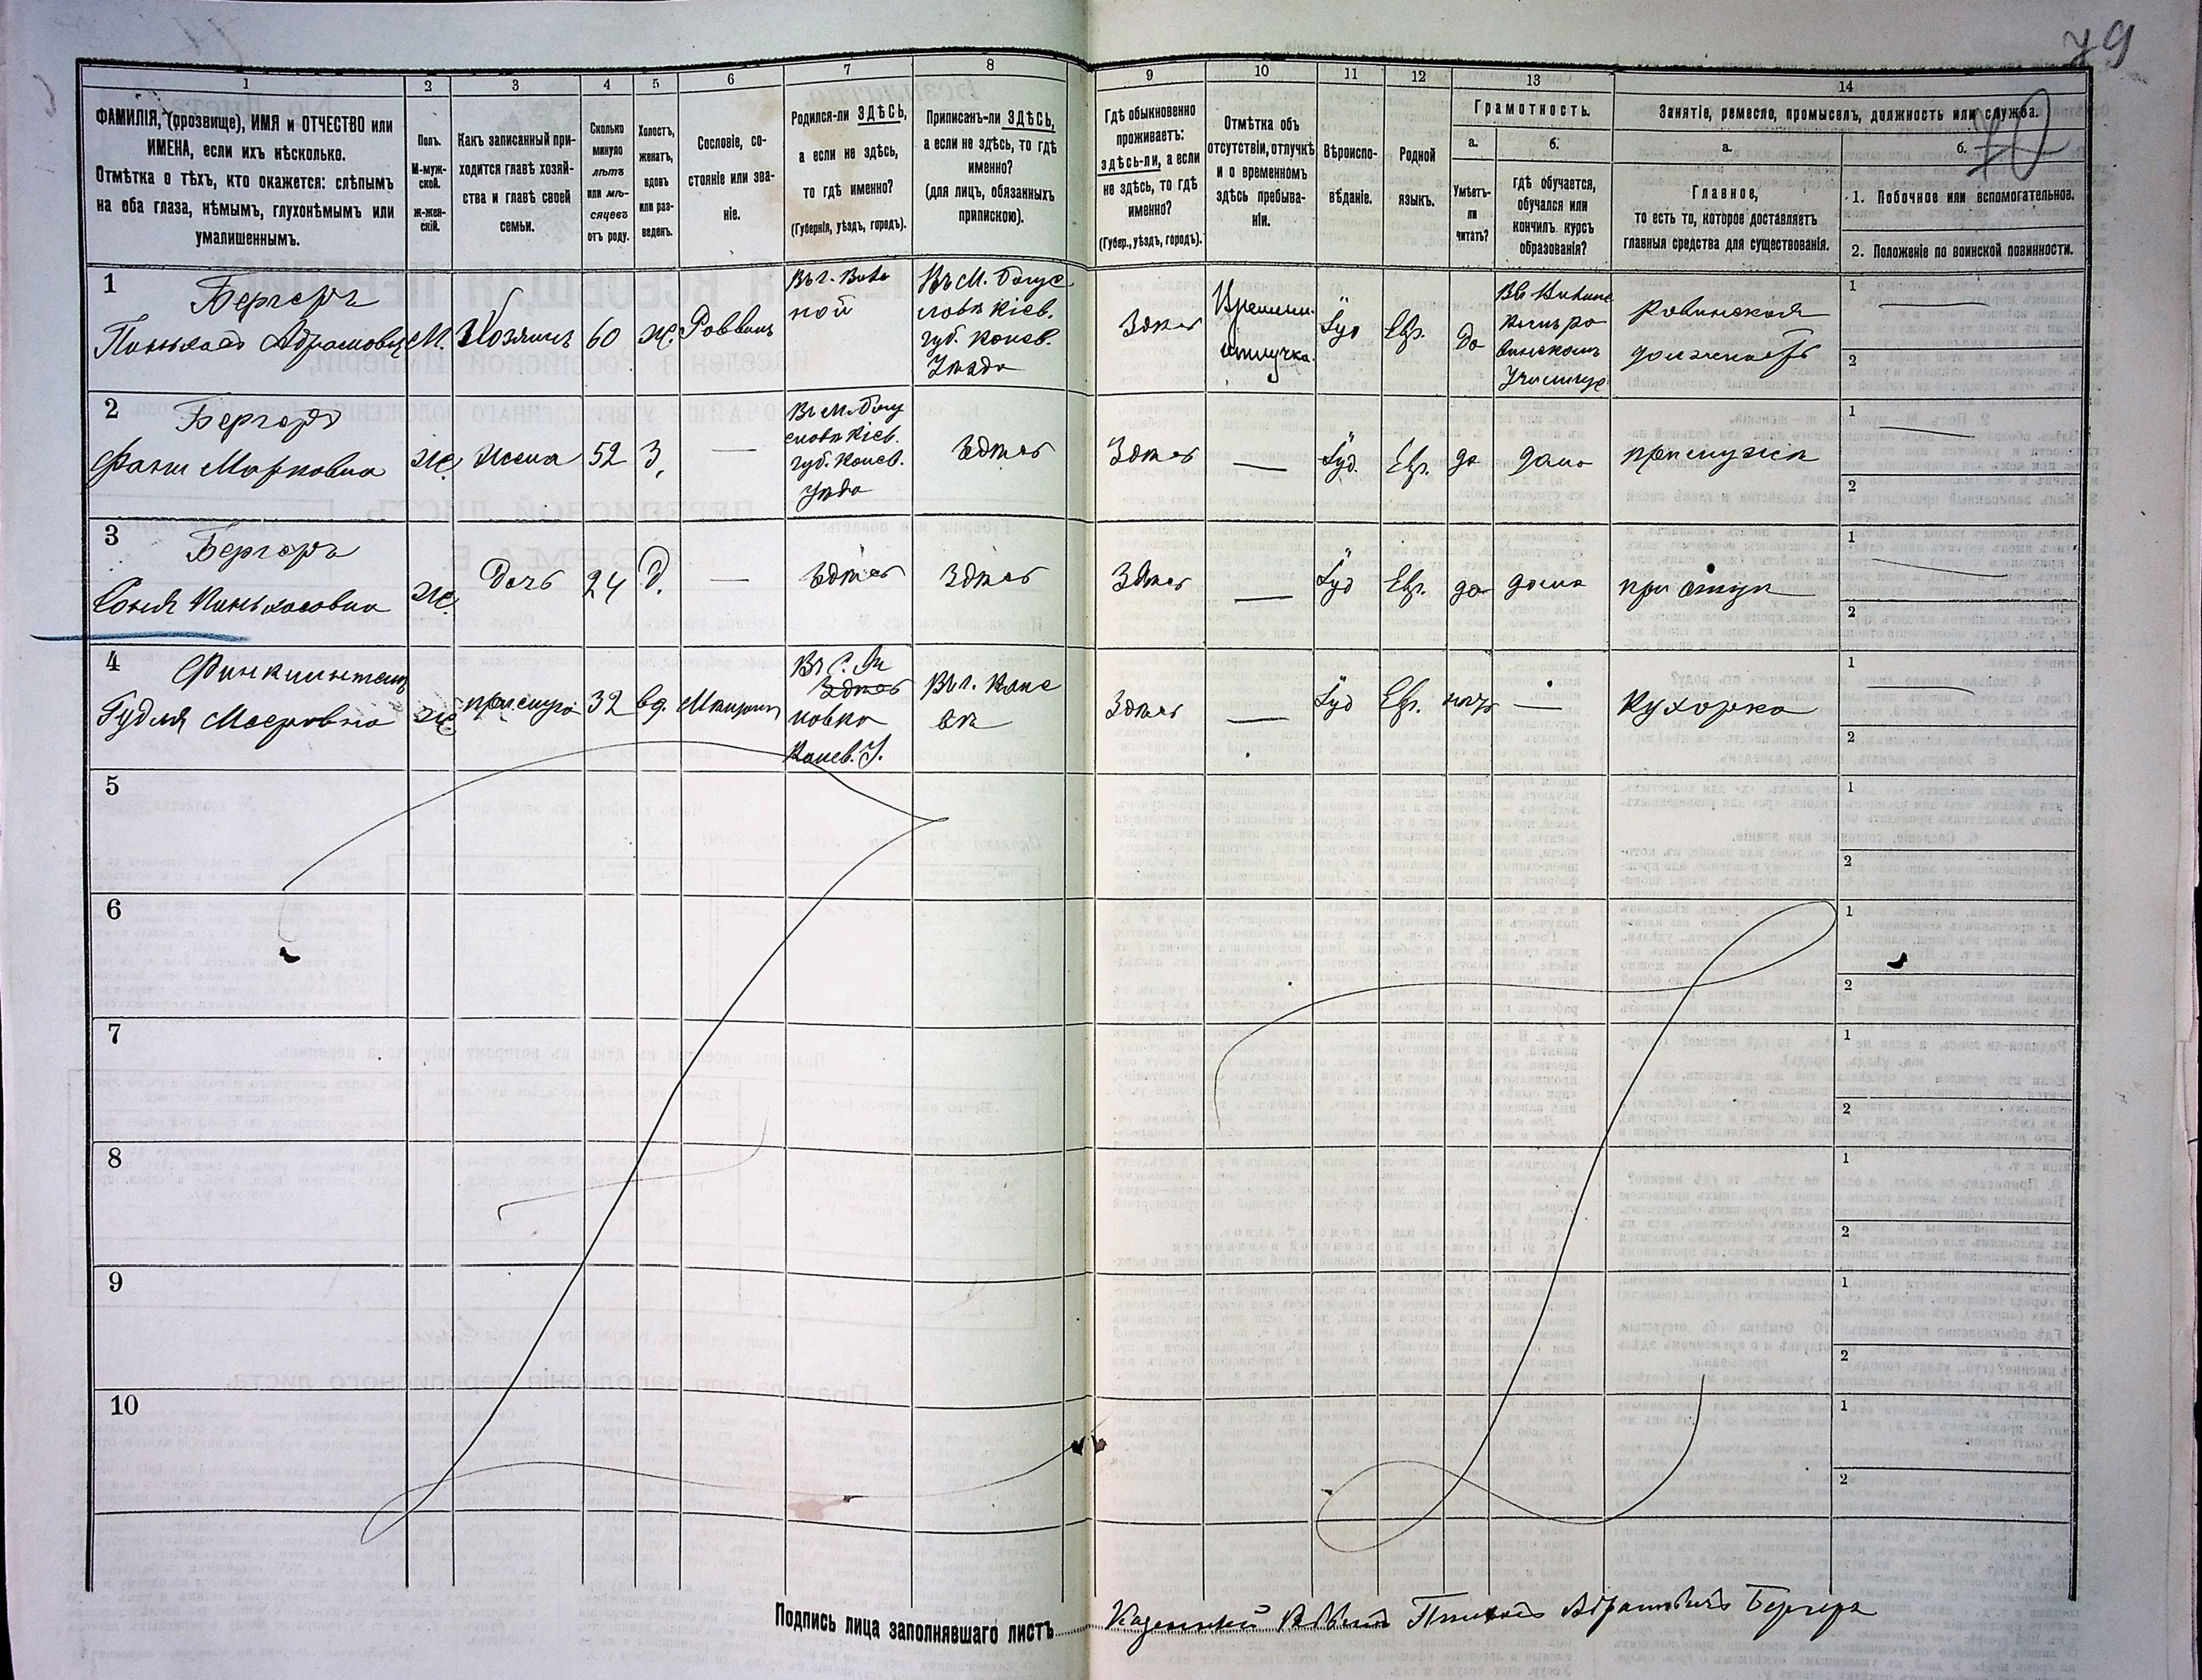 79
70
1
2
3
4
5
6
7
8
9
10
11
12
13
14
ФАМИЛІЯ, (прозвище), ИМЯ и ОТЧЕСТВО или
ИМЕНА, если ихъ нѣсколько.
Отмѣтка о тѣхъ, кто окажется: слѣпымъ
на оба глаза, нѣмымъ, глухонѣмымъ или
умалишеннымъ.
Полъ.
М-муж-
ской.
Ж-жен-
скій.
Какъ записанный при-
ходится главѣ хозяй-
ства и главѣ своей
семьи.
Сколько
минуло
лѣтъ
или мѣ-
сяцевъ
отъ роду.
Холостъ,
женатъ,
вдовъ
или раз-
веденъ.
Сословіе, со-
стояніе или зва-
ніе.
Родился-ли ЗДѢСЬ,
а если не здѣсь,
то гдѣ именно?
(Губернія, уѣздъ, городъ).
Приписанъ-ли ЗДѢСЬ,
а если не здѣсь, то гдѣ
именно?
(для лицъ, обязанныхъ
припискою).
Гдѣ обыкновенно
проживаетъ:
здѣсь-ли, а если
не здѣсь, то гдѣ
именно?
(Губер., уѣздъ, городъ).
Отмѣтка объ
отсутствіи, отлучкѣ
и о временномъ
здѣсь пребыва-
ніи.
Вѣроиспо-
вѣданіе.
Родной
языкъ.
Грамотность.
а.
Умѣетъ-
ли
читать?
б.
гдѣ обучается,
обучался или
кончилъ курсъ
образованія?
Занятіе, ремесло, промыселъ, должность или служба.
а.
Главное,
то есть то, которое доставляетъ
главныя средства для существованія.
б.
1. Побочное или вспомогательное.
2. Положеніе по воинской повинности.
1
Бергеръ
Абрамовичъ
М.
Хозяинъ
60
ж.
Раввинъ
Въ М. Богус
лавѣ Кіев.
губ. Канев.
Уѣзда
Здѣсь
Іуд
Евр.
да
Равинская
должность
1
2
2
Бергеръ
Марковна
ж
жена
52
З.
—
Въ М. Богу
славѣ Кіев.
губ. Канев.
Уѣзда
Здѣсь
Здѣсь
—
Іуд.
Евр.
да
дома
при мужѣ
1
2
3
Бергеръ
Соня Піньхасовна
ж
Дочь
24
Д.
—
Здѣсь
Здѣсь
Здѣсь
—
Іуд
Евр.
да
дома
при отцѣ
1
2
4
Гудля Мееровна
ж
прислуга
32
вд.
Здѣсь
новка
Канев. У.
Въ г. Кане
вѣ
Здѣсь
—
Іуд
Евр.
нѣтъ
—
Кухарка
1
2
5
1
2
6
1
2
7
1
2
8
1
2
9
1
2
10
1
2
Подпись лица заполнявшаго листъ
Казенный Абрамовичъ Бергеръ